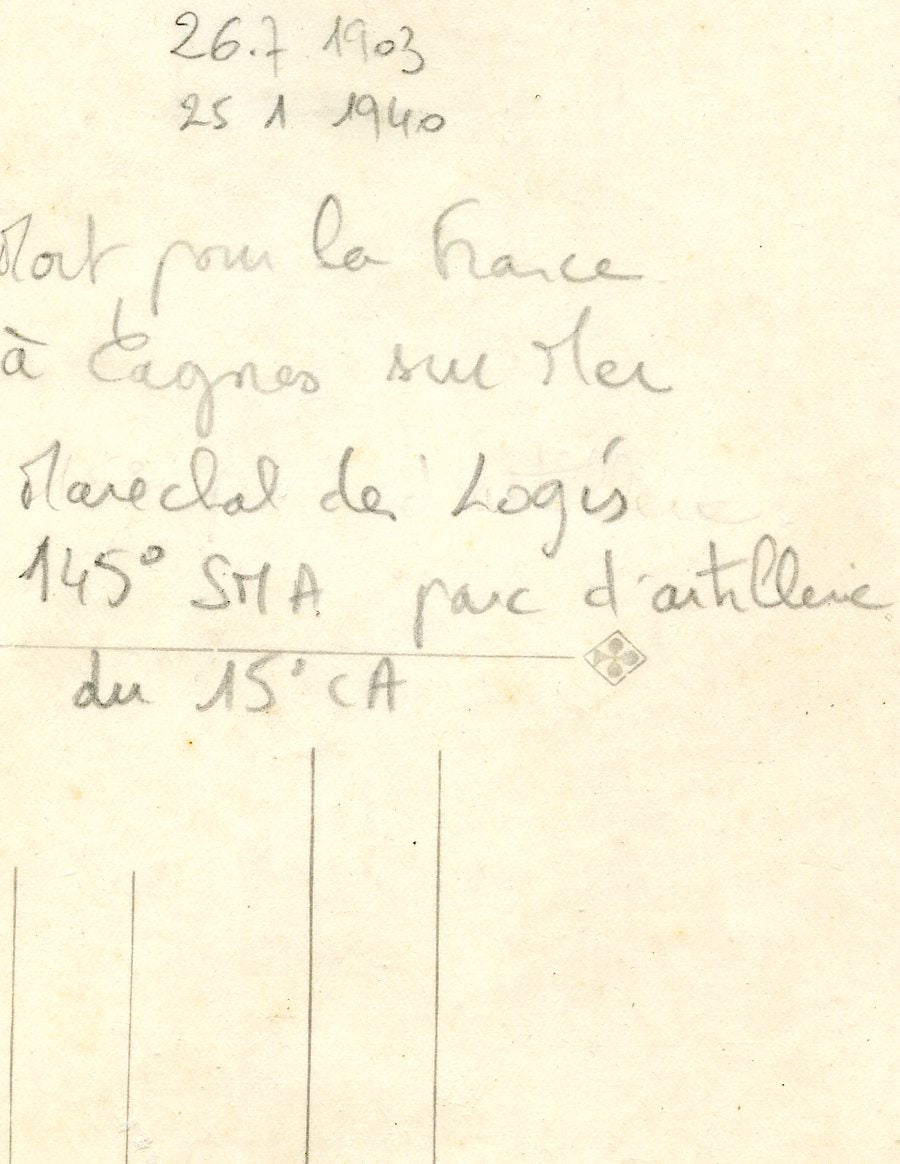 26.7 1903
25 1 1940
Mort pour la France
à Cagnes sur Mer
Marechal de Logis
145° SMA parc d'artillerie
du 15° CA